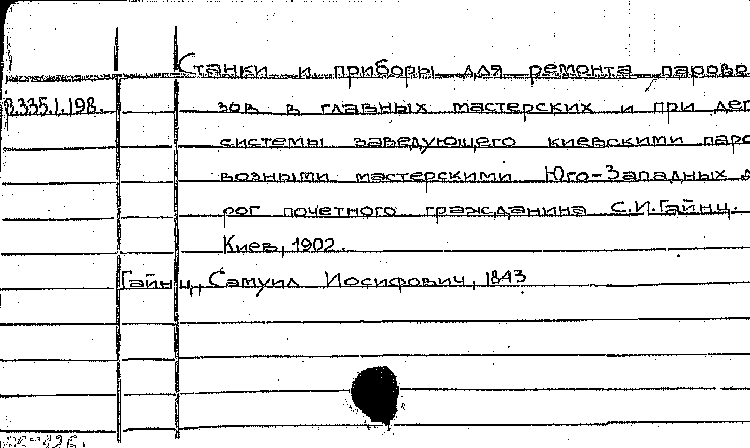 Станки и приборы для ремонта парово
В.335.1.198.
зов в главных мастерских и при деп
системы заведующего киевскими паро
возными мастерскими Юго-Западных д
рог почетного гражданина С.И.Гайнц.
Киев, 1902.
Гайнц, Самуил Иосифович, 1843